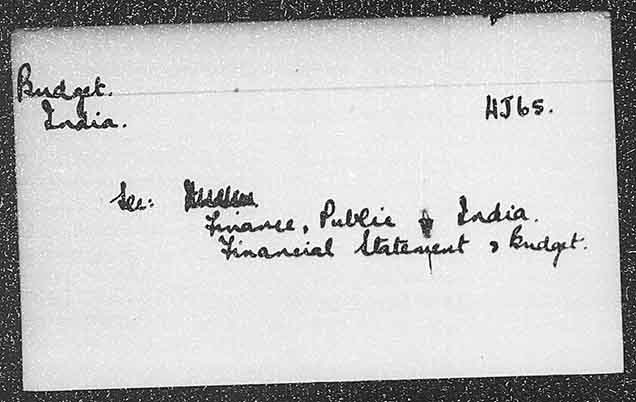 Budget.
India.
HJ65.
See:
Finance, Public India.
Financial Statement & Budget.